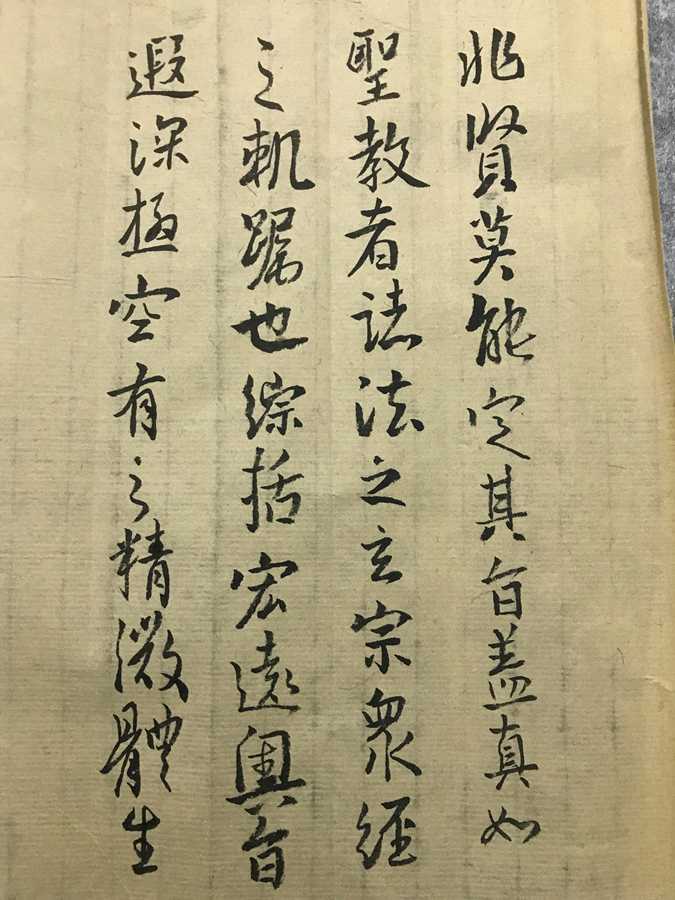 非賢莫能定其旨盖真如
聖教者諸法之玄宗衆經
之軌躅也綜括宏遠奧旨
遐深極空有之精微體生